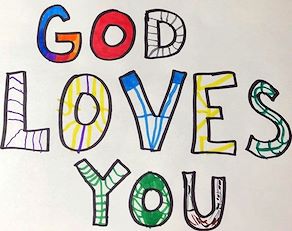 GOD
LOVES
YOU